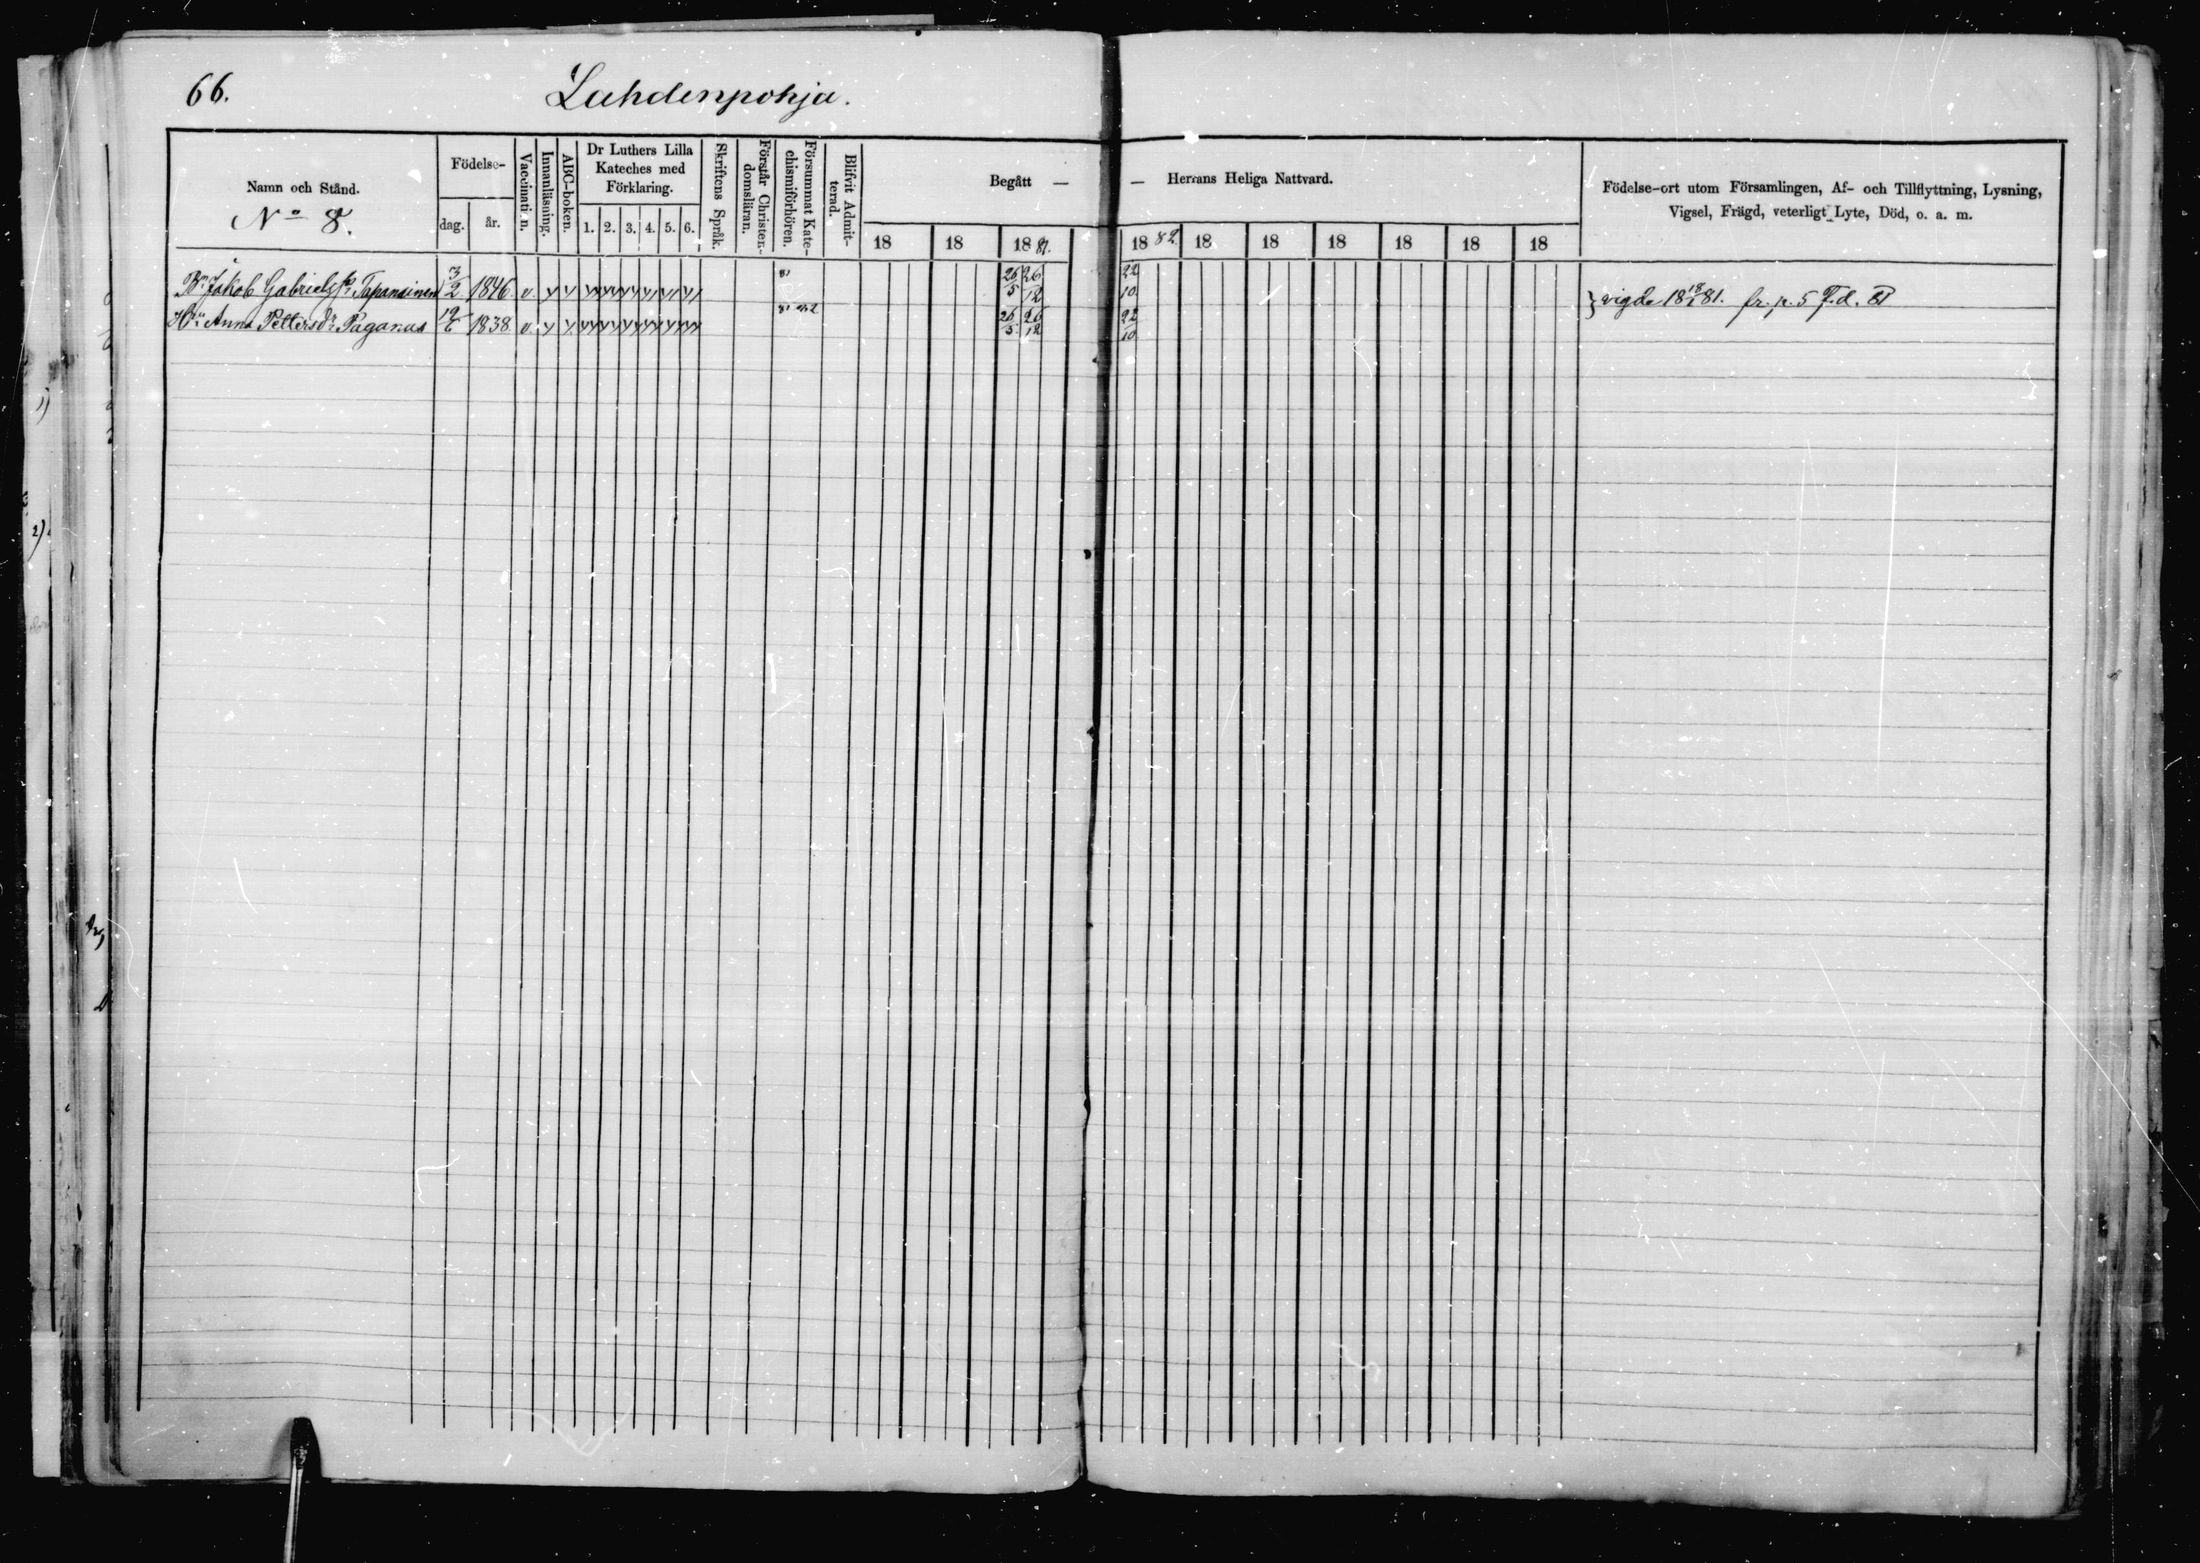 66. Lahdenpohja.
Namn och Stånd.
No 8.
Födelse-
dag. år.
Vaccination.
Innanläsning.
ABC-boken.
Dr Luthers Lilla
Kateches med
Förklaring.
1. 2. 3. 4. 5. 6.
Skriftens Språk.
Förstår Christen-
domsläran.
Försummat Kate-
chismiförhören.
Blifvit Admit-
terad.
Begått — — Herrans Heliga Nattvard.
18 18 1881. 1882. 18 18 18 18 18 18
Födelse-ort utom Församlingen, Af- och Tillflyttning, Lysning,
Vigsel, Frägd, veterligt Lyte, Död, o. a. m.
Bn Jakob Gabrielss. Tapanainen 3/2 1846. v. 81 26/5 26/12 22/10
} vigde 18 18/1 81. fr. p. 5 F. d. 81
Hu Anna Pettersdr Paganus 12/6 1838. v. 81 82 26/5 26/12 22/10